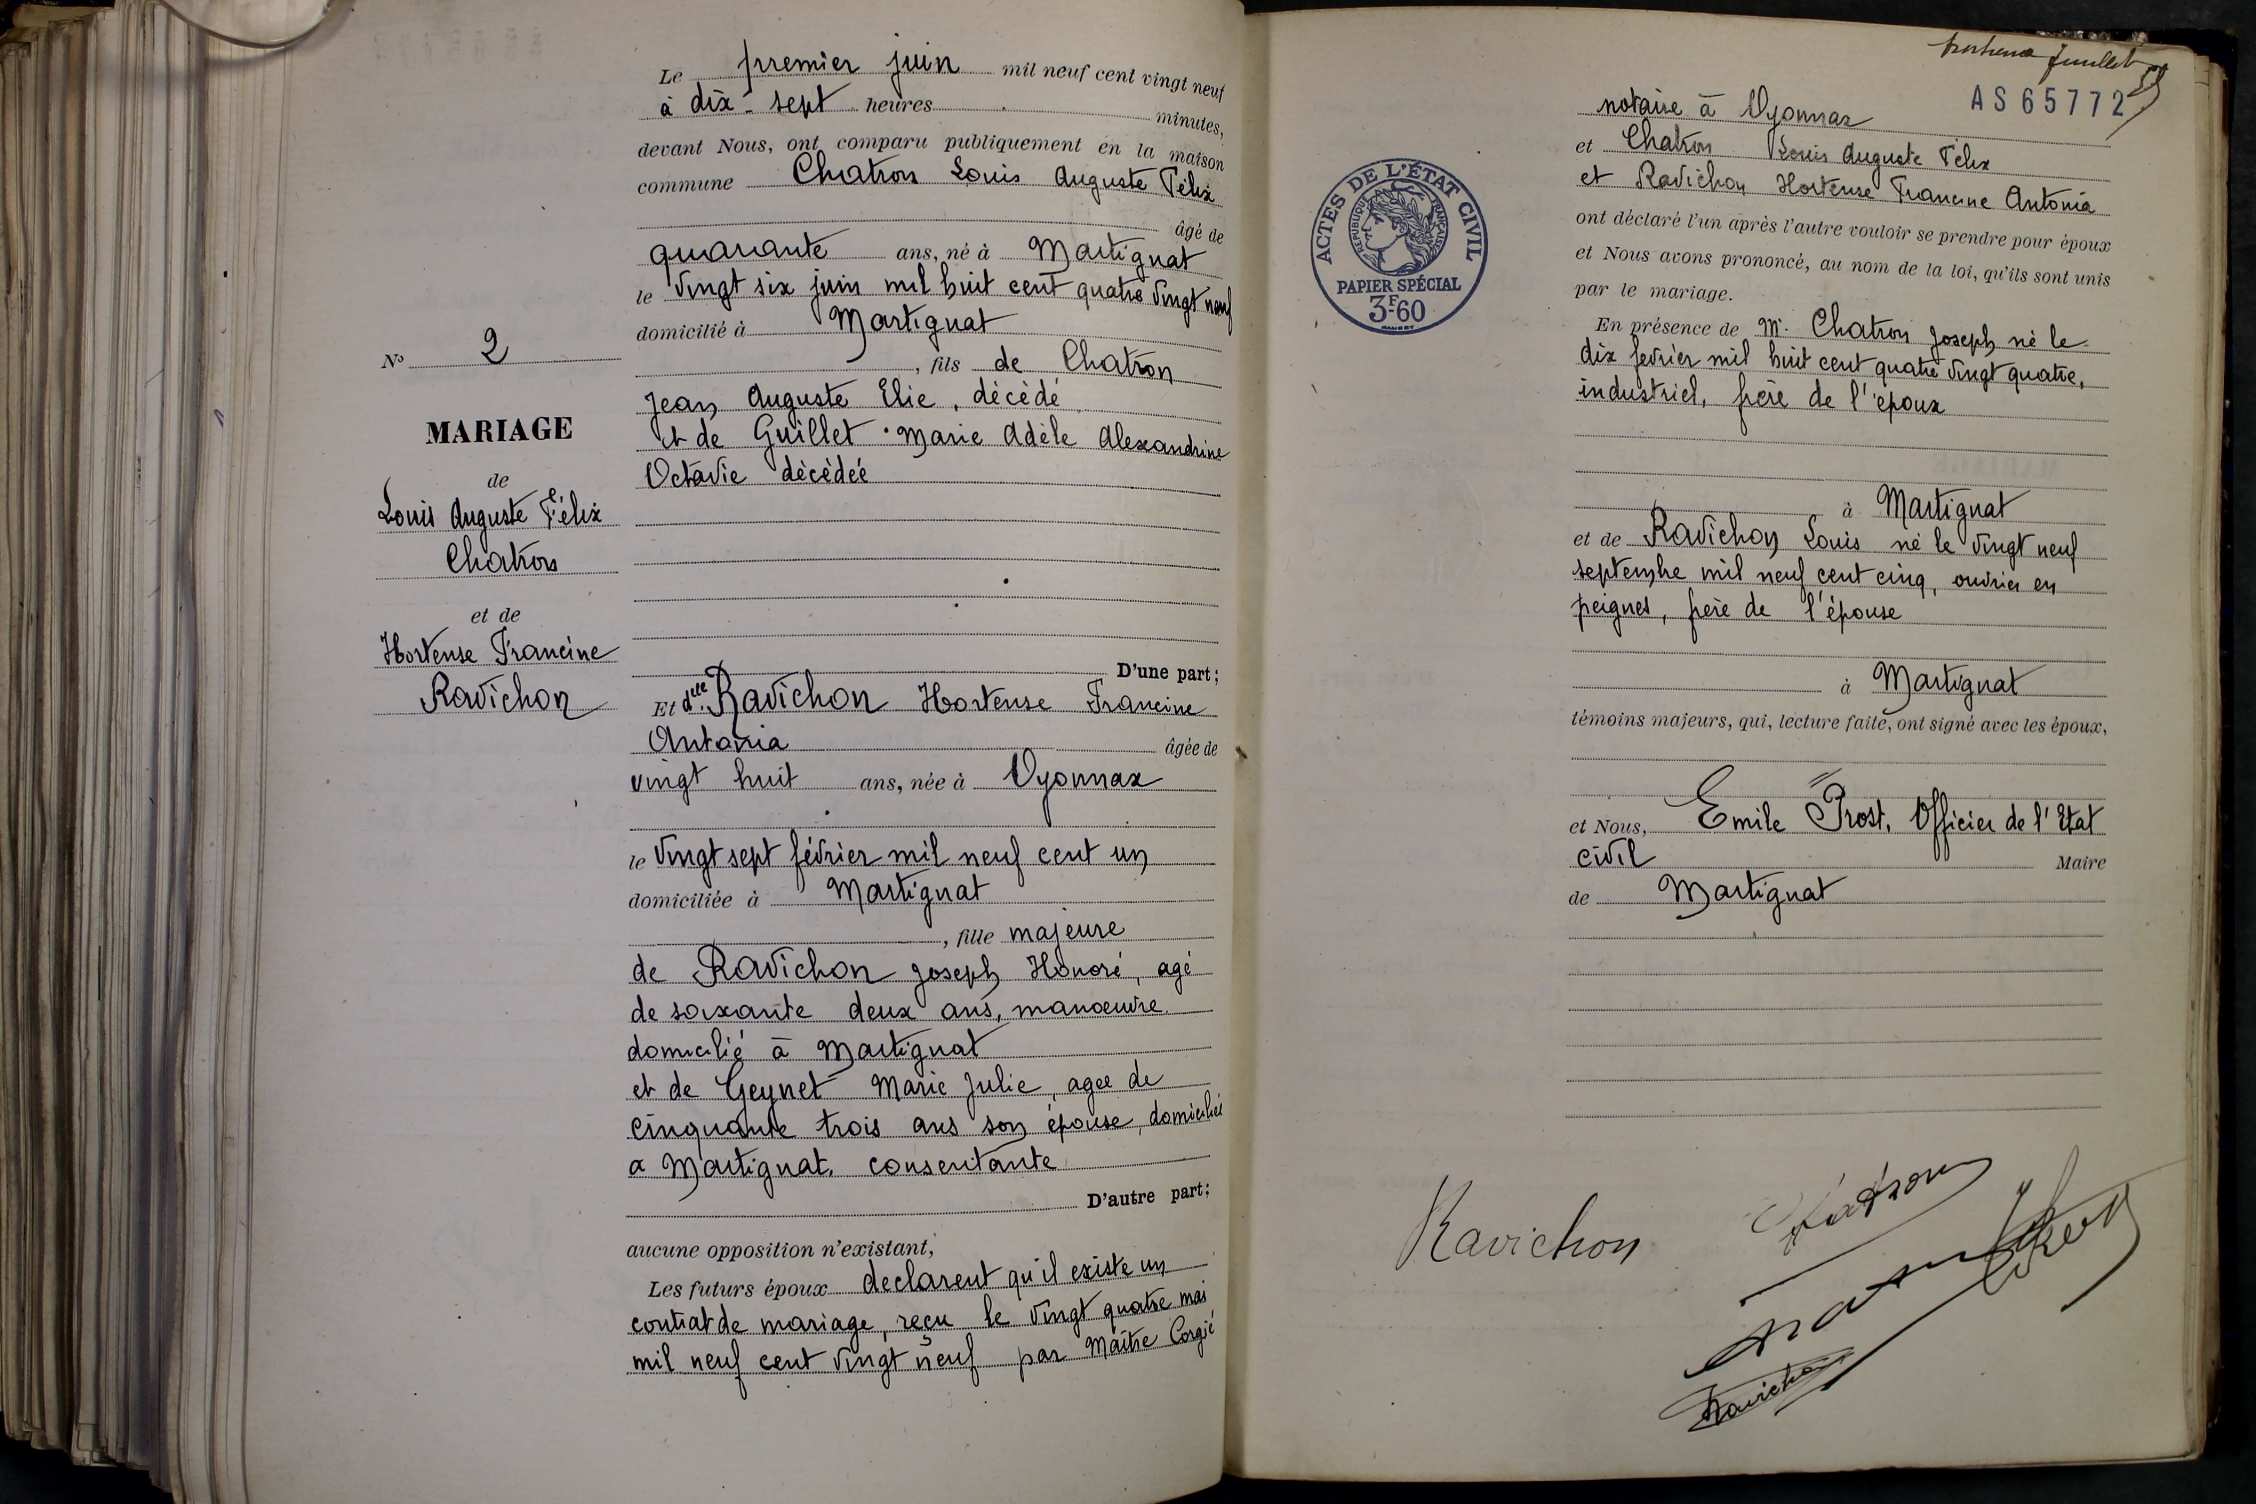 Le premier juin mil neuf cent vingt neuf
à dix-sept heures minutes,
devant Nous, ont comparu publiquement en la maison
commune Chatron Louis Auguste Félix
âgé de
quarante ans, né à Martignat
le vingt six juin mil huit cent quatre vingt neuf
domicilié à Martignat
, fils de Chatron
Jean Auguste Elie, décédé
et de Guillet Marie Adèle Alexandrine
Octavie décédée
D'une part;
Et dlle Ravichon Hortense Francine
Antonia âgée de
vingt huit ans, née à Oyonnax
le vingt sept février mil neuf cent un
domiciliée à Martignat
, fille majeure
de Ravichon Joseph Honoré, agé
de soixante deux ans, manoeuvre
domicilié à Martignat
et de Geynet Marie Julie, agée de
cinquante trois ans son épouse, domiciliés
a Martignat, consentante
D'autre part;
aucune opposition n'existant,
Les futurs époux declarent qu'il existe un
contrat de mariage, reçu le vingt quatre mai
mil neuf cent vingt neuf par Maître Corgié
No 2
MARIAGE
de
Louis Auguste Félix
Chatron
et de
Hortense Francine
Ravichon
Juillet
AS65772
notaire à Oyonnax
et Chatron Louis Auguste Félix
et Ravichon Hortense Francine Antonia
ont déclaré l'un après l'autre vouloir se prendre pour époux
et Nous avons prononcé, au nom de la loi, qu'ils sont unis
par le mariage.
En présence de M. Chatron Joseph né le
dix fevrier mil huit cent quatre vingt quatre,
industriel, frère de l'époux
à Martignat
et de Ravichon Louis né le vingt neuf
septembre mil neuf cent cinq, ouvrier en
peignes, frère de l'épouse
à Martignat
témoins majeurs, qui, lecture faite, ont signé avec les époux,
et Nous, Emile Prost, Officier de l'Etat
civil Maire
de Martignat
ACTES DE L'ÉTAT CIVIL
RÉPUBLIQUE FRANÇAISE
PAPIER SPÉCIAL
3F60
Ravichon
Chatron
Ravichon